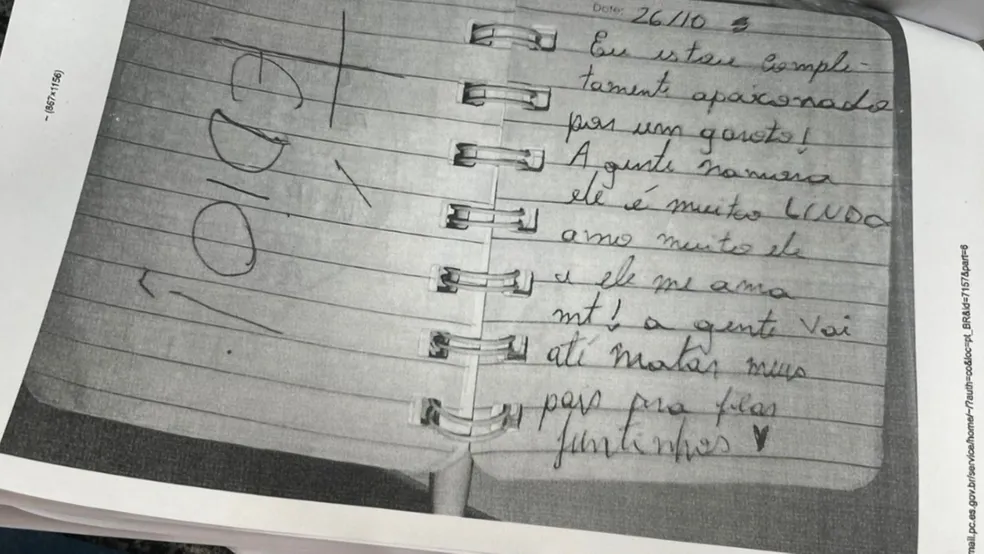 ~ (867×1156)
Date: 26/10
Eu estou comple-
tamente apaixonado
por um garoto!
A gente namora
ele é muito LINDO
amo muito ele
e ele me ama
mt! a gente vai
até matar meus
pais pra ficar
juntinhos ♥
mail.pc.es.gov.br/service/home/~/?auth=co&loc=pt_BR&id=7157&part=6